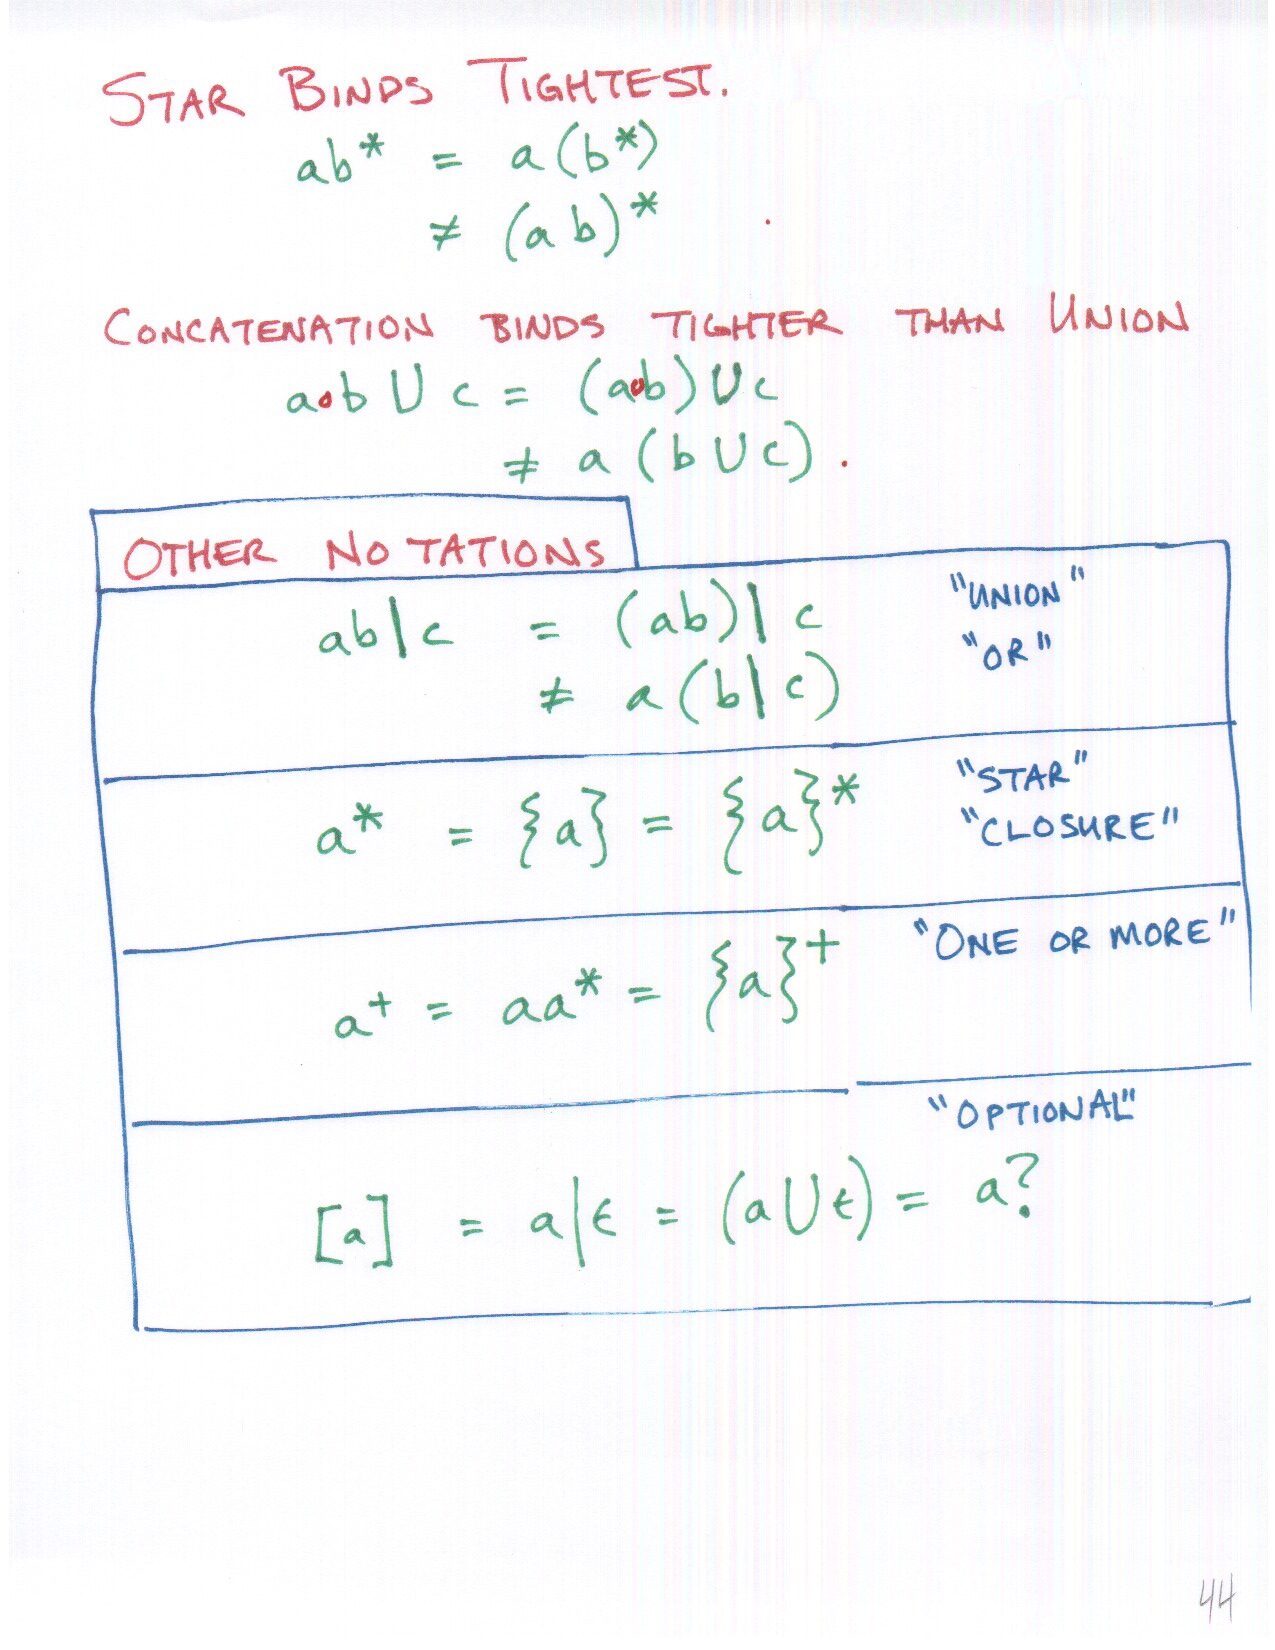 STAR BINDS TIGHTEST.
ab* = a(b*)
≠ (ab)*
CONCATENATION BINDS TIGHTER THAN UNION
a∘b ∪ c = (a∘b) ∪ c
≠ a (b ∪ c).
OTHER NOTATIONS
ab|c = (ab)|c "UNION"
≠ a(b|c) "OR"
a* = {a} = {a}* "STAR"
"CLOSURE"
a⁺ = aa* = {a}⁺ "ONE OR MORE"
"OPTIONAL"
[a] = a|ε = (a ∪ ε) = a?
44